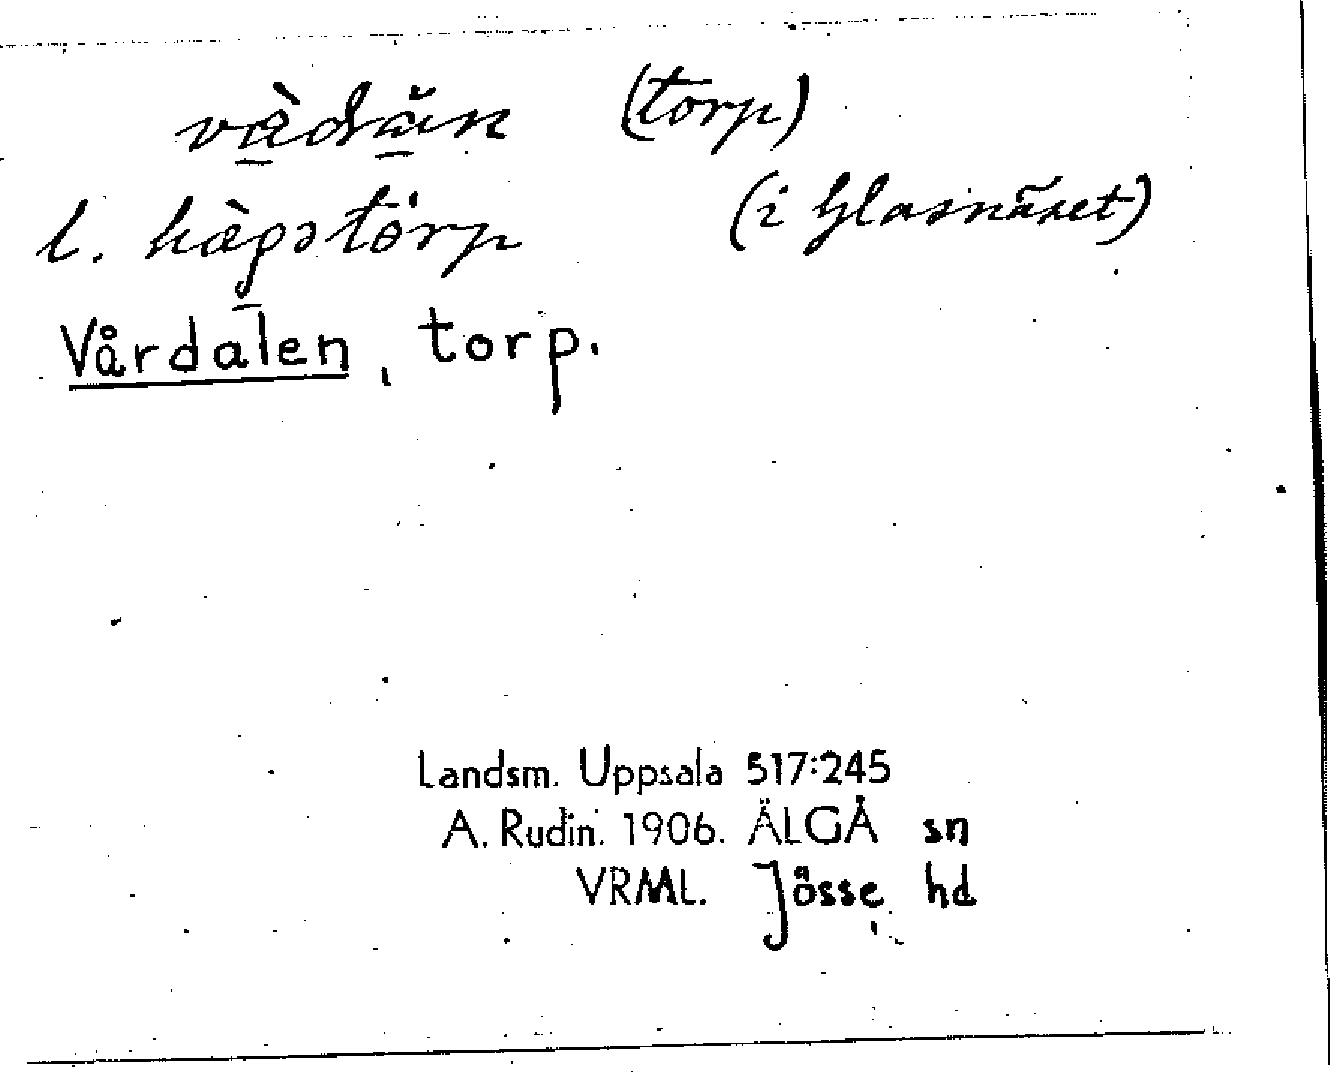 vàdăn (torp)
l. hàgətörp (i Glasnäset)
Vårdalen, torp.
Landsm. Uppsala 517:245
A. Rudin. 1906. ÄLGÅ sn
VRML. Jösse hd